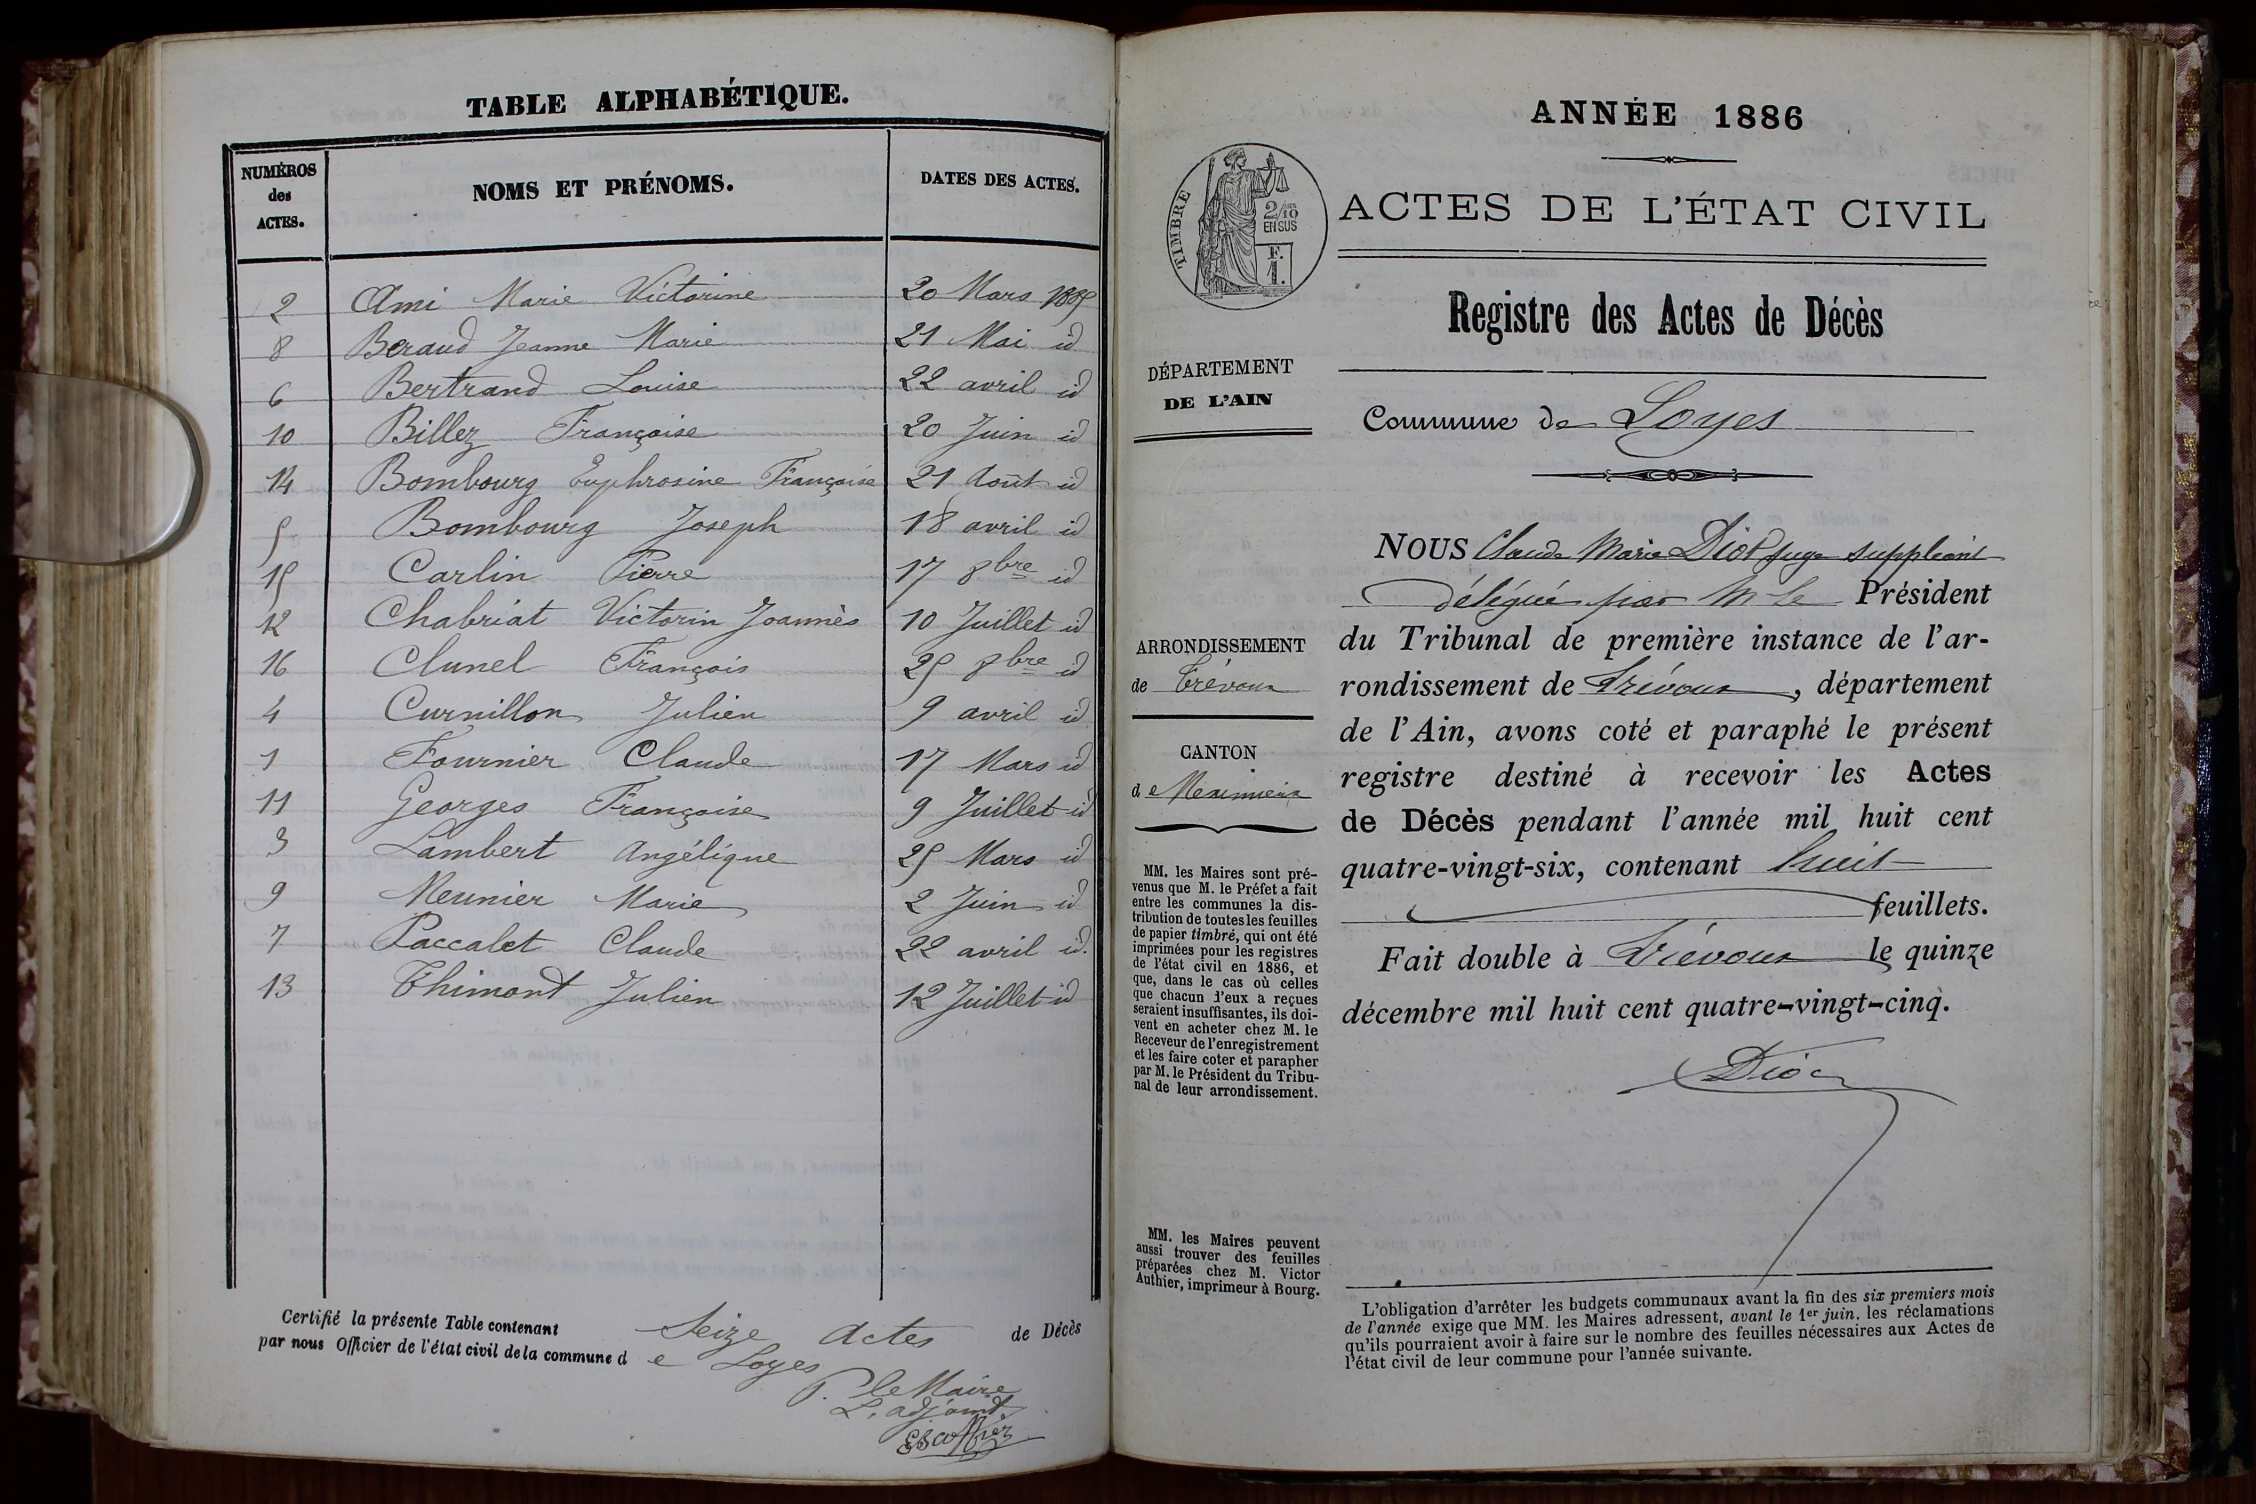 TABLE ALPHABÉTIQUE.
NUMÉROS des ACTES. NOMS ET PRÉNOMS. DATES DES ACTES.
2 Ami Marie Victorine 20 Mars 1885
8 Beraud Jeanne Marie 21 Mai id
6 Bertrand Louise 22 avril id
10 Billez Françoise 20 Juin id
14 Bombourg Euphrosine Françoise 21 Août id
5 Bombourg Joseph 18 avril id
15 Carlin Pierre 17 8bre id
12 Chabriat Victorin Joannès 10 Juillet id
16 Clunel François 25 8bre id
4 Curnillon Julien 9 avril id
1 Fournier Claude 17 Mars id
11 Georges Françoise 9 Juillet id
3 Lambert Angélique 25 Mars id
9 Meunier Marie 2 Juin id
7 Paccalet Claude 22 avril id.
13 Thimont Julien 12 Juillet id
Certifié la présente Table contenant Seize Actes de Décès
par nous Officier de l'état civil de la commune d e Loyes
P. le Maire
L'adjoint
Escoffier
ANNÉE 1886
TIMBRE
2/10
EN SUS
F.
1.
ACTES DE L'ÉTAT CIVIL
Registre des Actes de Décès
DÉPARTEMENT
DE L'AIN
Commune de Loyes
ARRONDISSEMENT
de Trévoux
CANTON
de Meximieux
MM. les Maires sont pré-
venus que M. le Préfet a fait
entre les communes la dis-
tribution de toutes les feuilles
de papier timbré, qui ont été
imprimées pour les registres
de l'état civil en 1886, et
que, dans le cas où celles
que chacun d'eux a reçues
seraient insuffisantes, ils doi-
vent en acheter chez M. le
Receveur de l'enregistrement
et les faire coter et parapher
par M. le Président du Tribu-
nal de leur arrondissement.
MM. les Maires peuvent
aussi trouver des feuilles
préparées chez M. Victor
Authier, imprimeur à Bourg.
NOUS Claude Marie Diot juge suppléant
délégué par M le Président
du Tribunal de première instance de l'ar-
rondissement de Trévoux, département
de l'Ain, avons coté et paraphé le présent
registre destiné à recevoir les Actes
de Décès pendant l'année mil huit cent
quatre-vingt-six, contenant huit
feuillets.
Fait double à Trévoux le quinze
décembre mil huit cent quatre-vingt-cinq.
Diot
L'obligation d'arrêter les budgets communaux avant la fin des six premiers mois
de l'année exige que MM. les Maires adressent, avant le 1er juin, les réclamations
qu'ils pourraient avoir à faire sur le nombre des feuilles nécessaires aux Actes de
l'état civil de leur commune pour l'année suivante.